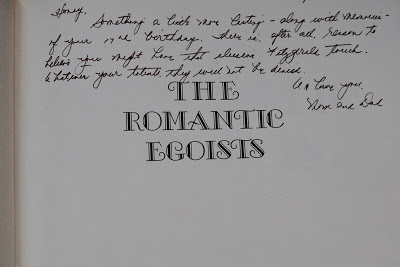 Honey,
Something a little more lasting - along with memories
of your 22nd birthday. There is, after all, reason to
believe you might have that elusive Fitzgerald touch.
Whatever your talents they will not be denied.
We love you,
Mom and Dad
THE
ROMANTIC
EGOISTS